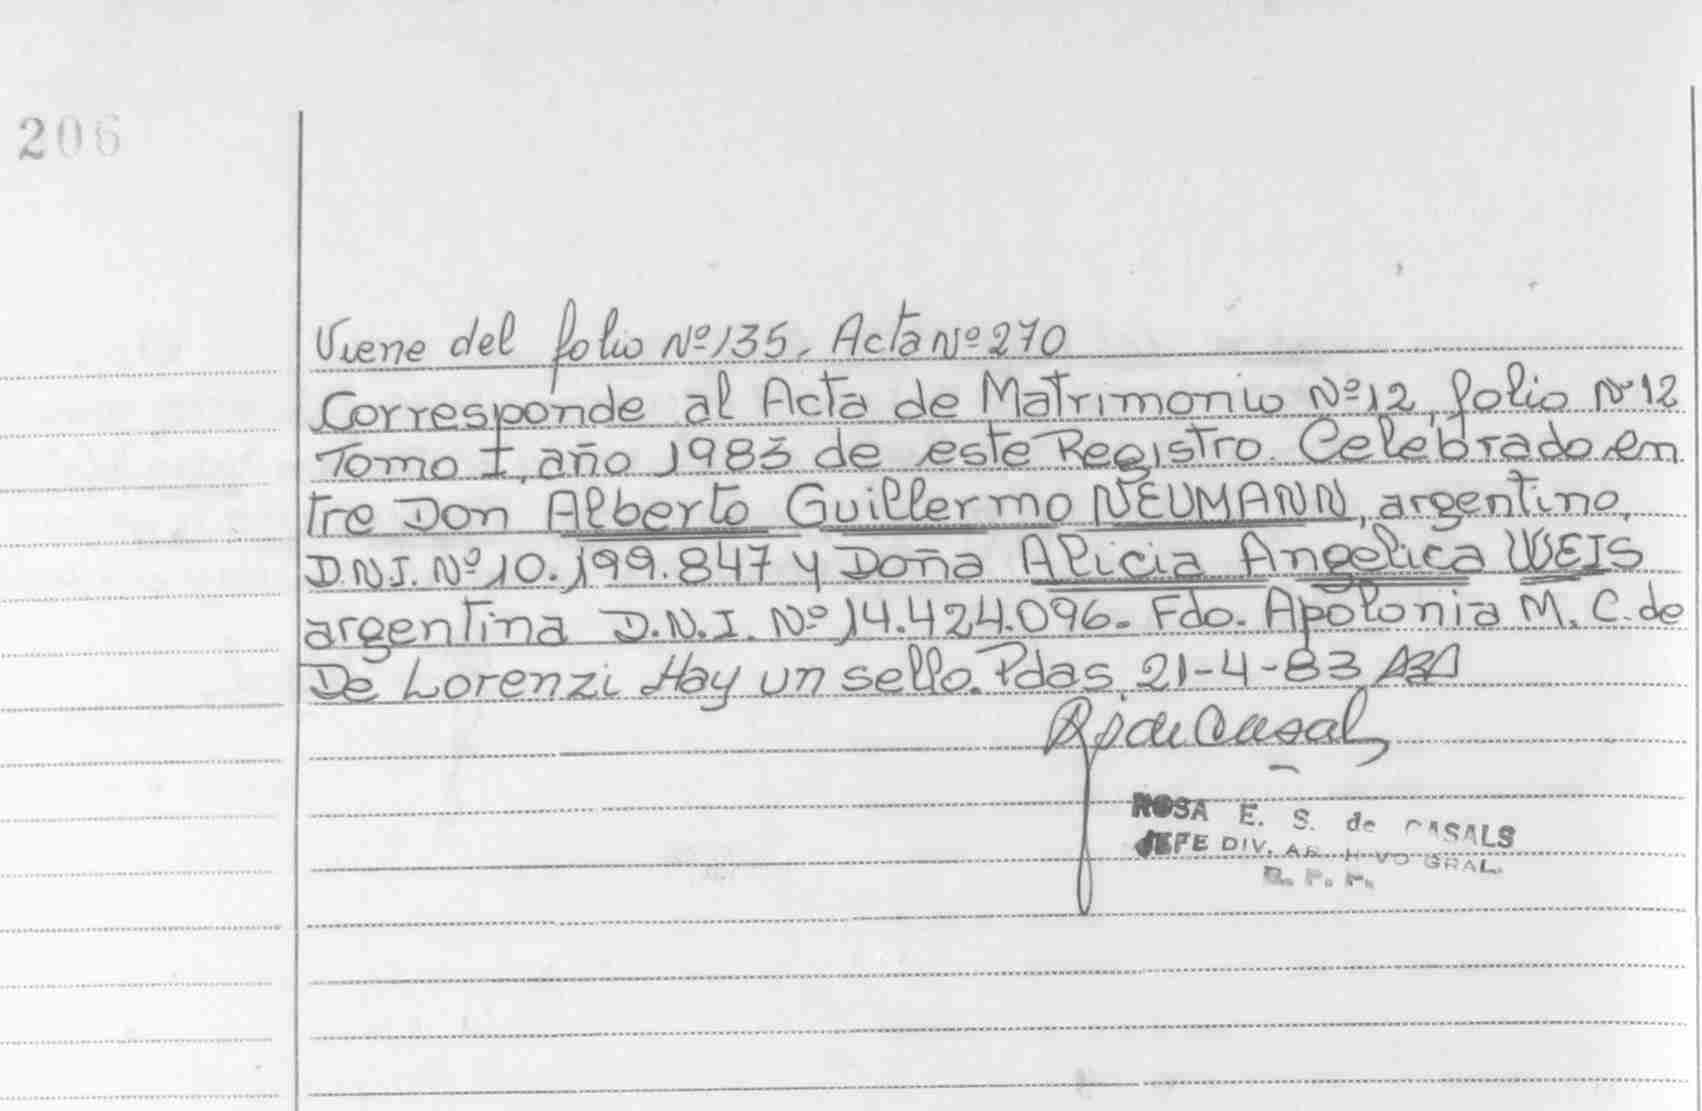 206
Viene del folio Nº 135, Acta Nº 270
Corresponde al Acta de Matrimonio Nº 12, folio Nº 12
Tomo I, año 1983 de este Registro. Celebrado en
tre Don Alberto Guillermo NEUMANN, argentino,
D.N.I. Nº 10.199.847 y Doña Alicia Angelica WEIS
argentina D.N.I. Nº 14.424.096. Fdo. Apolonia M. C. de
De Lorenzi Hay un sello. Pdas. 21-4-83
ROSA E. S. de CASALS
JEFE DIV. ARCHIVO GRAL.